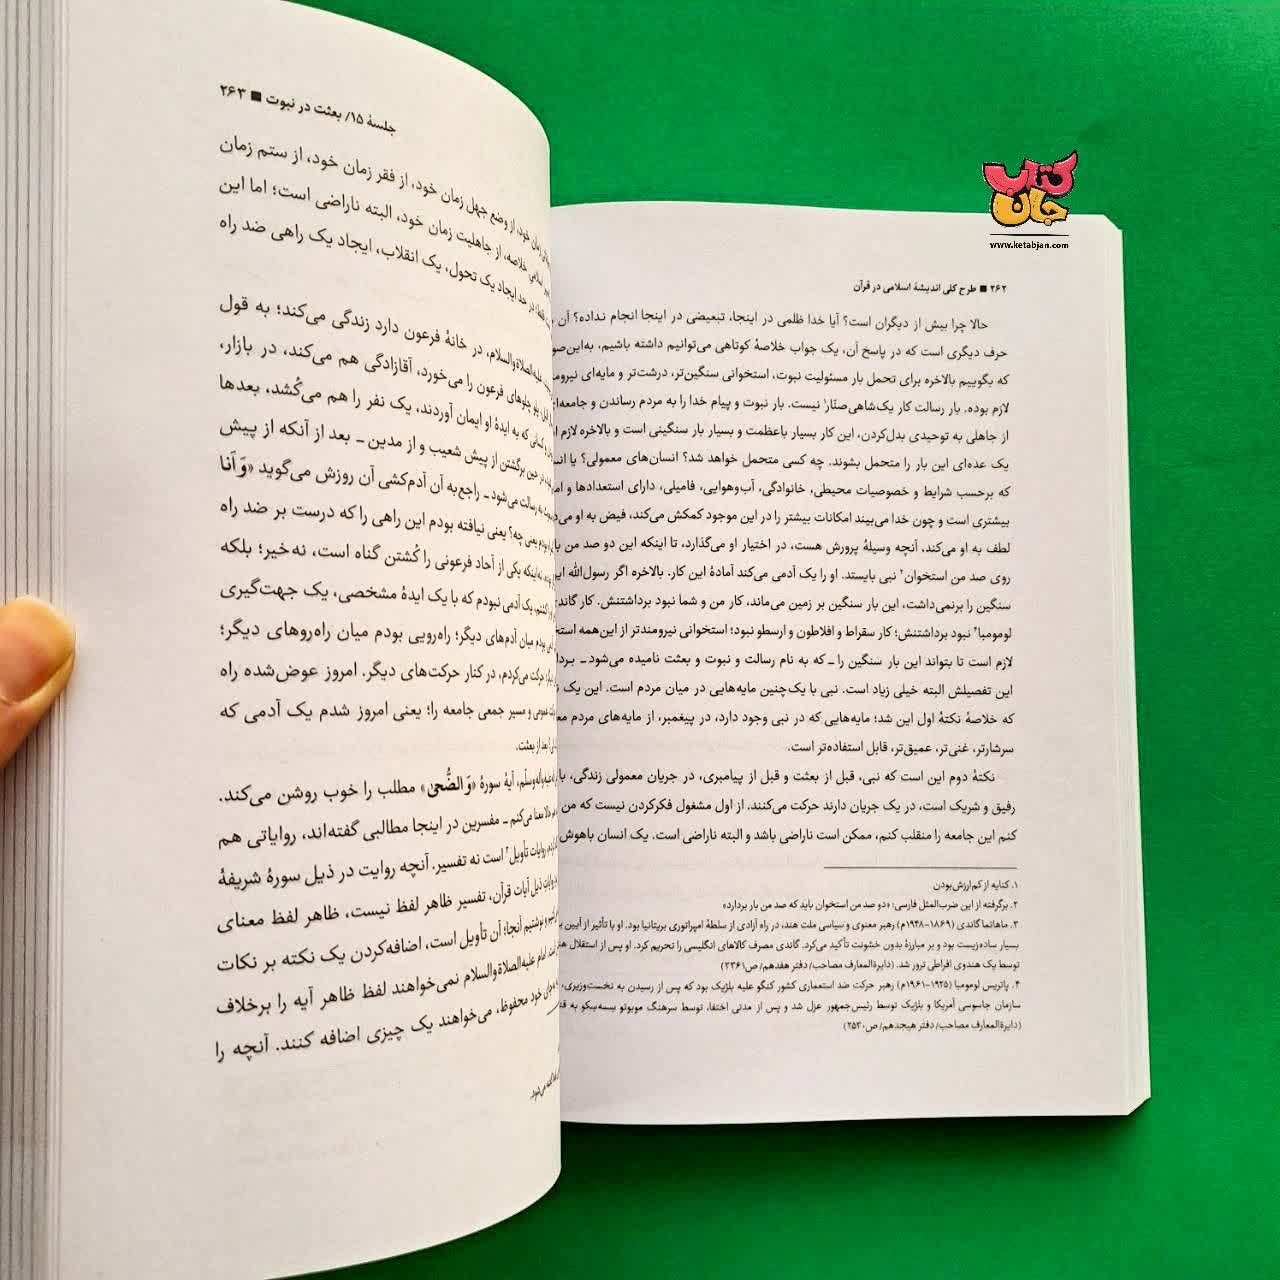 کتاب
جان
www.ketabjan.com
۲۶۲ ■ طرح کلی اندیشهٔ اسلامی در قرآن
حالا چرا بیش از دیگران است؟ آیا خدا ظلمی در اینجا، تبعیضی در اینجا انجام نداده؟ آن
حرف دیگری است که در پاسخ آن، یک جواب خلاصهٔ کوتاهی می‌توانیم داشته باشیم،
که بگوییم بالاخره برای تحمل بار مسئولیت نبوت، استخوانی سنگین‌تر، درشت‌تر و مایه‌ای
لازم بوده. بار رسالت کار یک‌شاهی‌صنّار۱ نیست. بار نبوت و پیام خدا را به مردم رساندن و
از جاهلی به توحیدی بدل‌کردن، این کار بسیار باعظمت و بسیار بار سنگینی است و بالاخره لازم
یک عده‌ای این بار را متحمل بشوند. چه کسی متحمل خواهد شد؟ انسان‌های معمولی؟ یا
که برحسب شرایط و خصوصیات محیطی، خانوادگی، آب‌وهوایی، فامیلی، دارای استعدادها و
بیشتری است و چون خدا می‌بیند امکانات بیشتر را در این موجود کمکش می‌کند، فیض به او
لطف به او می‌کند، آنچه وسیلهٔ پرورش هست، در اختیار او می‌گذارد، تا اینکه این دو صد من
روی صد من استخوان۲ نبی بایستد. او را یک آدمی می‌کند آمادهٔ این کار. بالاخره اگر رسول‌الله
سنگین را برنمی‌داشت، این بار سنگین بر زمین می‌ماند، کار من و شما نبود برداشتنش. کار
لومومبا۴ نبود برداشتنش؛ کار سقراط و افلاطون و ارسطو نبود؛ استخوانی نیرومندتر از این‌همه
لازم است تا بتواند این بار سنگین را ـ که به نام رسالت و نبوت و بعثت نامیده می‌شود ـ
این تفصیلش البته خیلی زیاد است. نبی با یک‌چنین مایه‌هایی در میان مردم است. این یک
که خلاصهٔ نکتهٔ اول این شد؛ مایه‌هایی که در نبی وجود دارد، در پیغمبر، از مایه‌های مردم
سرشارتر، غنی‌تر، عمیق‌تر، قابل استفاده‌تر است.
نکتهٔ دوم این است که نبی، قبل از بعثت و قبل از پیامبری، در جریان معمولی زندگی،
رفیق و شریک است، در یک جریان دارند حرکت می‌کنند. از اول مشغول فکرکردن نیست که من
کنم این جامعه را منقلب کنم، ممکن است ناراضی باشد و البته ناراضی است. یک انسان باهوش
۱. کنایه از کم‌ارزش‌بودن
۲. برگرفته از این ضرب‌المثل فارسی: «دو صد من استخوان باید که صد من بار بردارد»
۳. ماهاتما گاندی (۱۸۶۹-۱۹۴۸م) رهبر معنوی و سیاسی ملت هند، در راه آزادی از سلطهٔ امپراتوری بریتانیا بود. او با تأثیر از آیین
بسیار ساده‌زیست بود و بر مبارزهٔ بدون خشونت تأکید می‌کرد. گاندی مصرف کالاهای انگلیسی را تحریم کرد. او پس از استقلال
توسط یک هندوی افراطی ترور شد. (دایرةالمعارف مصاحب/ دفتر هفدهم/ ص۲۳۶۱)
۴. پاتریس لومومبا (۱۹۲۵-۱۹۶۱م) رهبر حرکت ضد استعماری کشور کنگو علیه بلژیک بود که پس از رسیدن به نخست‌وزیری،
سازمان جاسوسی آمریکا و بلژیک توسط رئیس‌جمهور عزل شد و پس از مدتی اختفا، توسط سرهنگ موبوتو سسه‌سکو به
(دایرةالمعارف مصاحب/ دفتر هیجدهم/ ص۲۵۳۰)
جلسهٔ ۱۵/ بعثت در نبوت ■ ۲۶۳
زمان خود، از وضع جهل زمان خود، از فقر زمان خود، از ستم زمان
خلاصه، از جاهلیت زمان خود، البته ناراضی است؛ اما این
در حد ایجاد یک تحول، یک انقلاب، ایجاد یک راهی ضد راه
علیه‌الصلاةوالسلام، در خانهٔ فرعون دارد زندگی می‌کند؛ به قول
چلوهای فرعون را می‌خورد، آقازادگی هم می‌کند، در بازار،
کسانی که به ایدهٔ او ایمان آوردند، یک نفر را هم می‌کُشد، بعدها
در حین برگشتن از پیش شعیب و از مدین ـ بعد از آنکه از پیش
به رسالت می‌شود ـ راجع‌به آن آدم‌کشی آن روزش می‌گوید «وَ اَنَا
یعنی چه؟ یعنی نیافته بودم این راهی را که درست بر ضد راه
نه‌اینکه یکی از آحاد فرعونی را کُشتن گناه است، نه‌خیر؛ بلکه
یک آدمی نبودم که با یک ایدهٔ مشخصی، یک جهت‌گیری
بودم میان آدم‌های دیگر؛ راه‌رویی بودم میان راه‌روهای دیگر؛
حرکت می‌کردم، در کنار حرکت‌های دیگر. امروز عوض‌شده راه
عمومی و مسیر جمعی جامعه را؛ یعنی امروز شدم یک آدمی که
بعد از بعثت.
آیهٔ سورهٔ «وَ الضُّحیٰ» مطلب را خوب روشن می‌کند.
معنا می‌کنم ـ مفسرین در اینجا مطالبی گفته‌اند، روایاتی هم
روایات تأویل۲ است نه تفسیر. آنچه روایت در ذیل سورهٔ شریفهٔ
روایات ذیل آیات قرآن، تفسیر ظاهر لفظ نیست، ظاهر لفظ معنای
نوشتیم آنجا؛ آن تأویل است، اضافه‌کردن یک نکته بر نکات
امام علیه‌الصلاةوالسلام نمی‌خواهند لفظ ظاهر آیه را برخلاف
خود محفوظ، می‌خواهند یک چیزی اضافه کنند. آنچه را